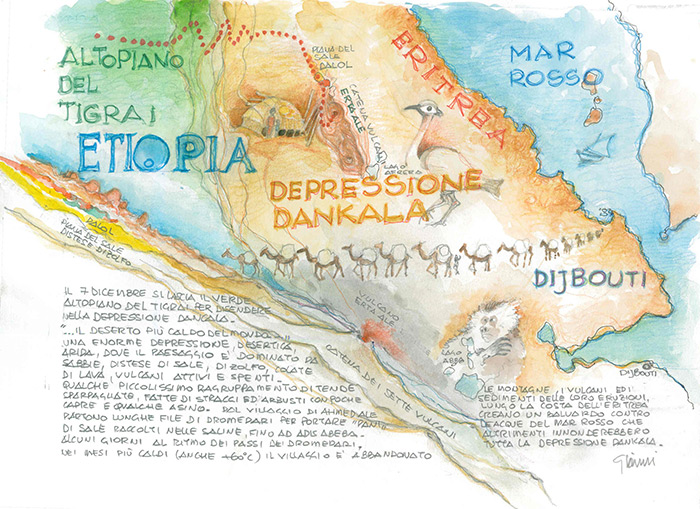 ALTOPIANO
DEL
TIGRAI
ETIOPIA
PIANA DEL
SALE
DALOL
CATENA VULCANI
ERTA ALE
ERITREA
MAR
ROSSO
LAGO
AFRERA
DEPRESSIONE
DANKALA
DALOL
PIANA DEL SALE
DISTESE DI ZOLFO
DIJBOUTI
VULCANO
ERTA ALE
LAGO
ABBE
DIJBOUTI
CATENA DEI SETTE VULCANI
IL 7 DICEMBRE SI LASCIA IL VERDE
ALTOPIANO DEL TIGRAI PER DISCENDERE
NELLA DEPRESSIONE DANCALA -
"... IL DESERTO PIÙ CALDO DEL MONDO -
UNA ENORME DEPRESSIONE, DESERTICA,
ARIDA, DOVE IL PAESAGGIO E' DOMINATO DA
SABBIE, DISTESE DI SALE, DI ZOLFO, COLATE
DI LAVA, VULCANI ATTIVI E SPENTI.
QUALCHE PICCOLISSIMO RAGRUPPAMENTO DI TENDE
SPARPAGLIATE, FATTE DI STRACCI ED ARBUSTI CON POCHE
CAPRE E QUALCHE ASINO. DAL VILLAGGIO DI AHMED ALE
PARTONO LUNGHE FILE DI DROMEDARI PER PORTARE "PANI"
DI SALE RACCOLTI NELLE SALINE, FINO AD ADIS ABEBA.
ALCUNI GIORNI AL RITMO DEI PASSI DEI DROMEDARI.
NEI MESI PIÙ CALDI (ANCHE +60°C) IL VILLAGGIO E' ABBANDONATO
LE MONTAGNE, I VULCANI ED I
SEDIMENTI DELLE LORO ERUZIONI,
LUNGO LA COSTA DELL'ERITREA
CREANO UN BALUARDO CONTRO
LE ACQUE DEL MAR ROSSO CHE
ALTRIMENTI INNONDEREBBERO
TUTTA LA DEPRESSIONE DANKALA.
Gianni